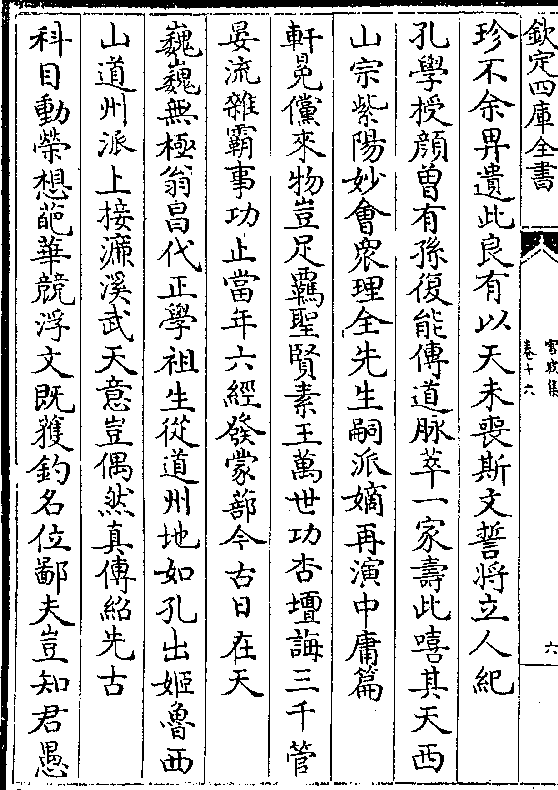 欽定四庫全書
雪坡集
卷十六
六
珍不余畀遺此良有以天未喪斯文誓將立人紀
孔學授顔曾有孫復能傳道脉萃一家壽此嘻其天西
山宗紫陽妙會衆理全先生嗣派嫡再演中庸篇
軒冕儻來物豈足羈聖賢素王萬世功杏壇誨三千管
晏流雜霸事功止當年六經發蒙蔀今古日在天
巍巍無極翁昌代正學祖生從道州地如孔出姬魯西
山道州派上接濂溪武天意豈偶然真傳紹先古
科目動榮想葩華競浮文既獲釣名位鄙夫豈知君愚